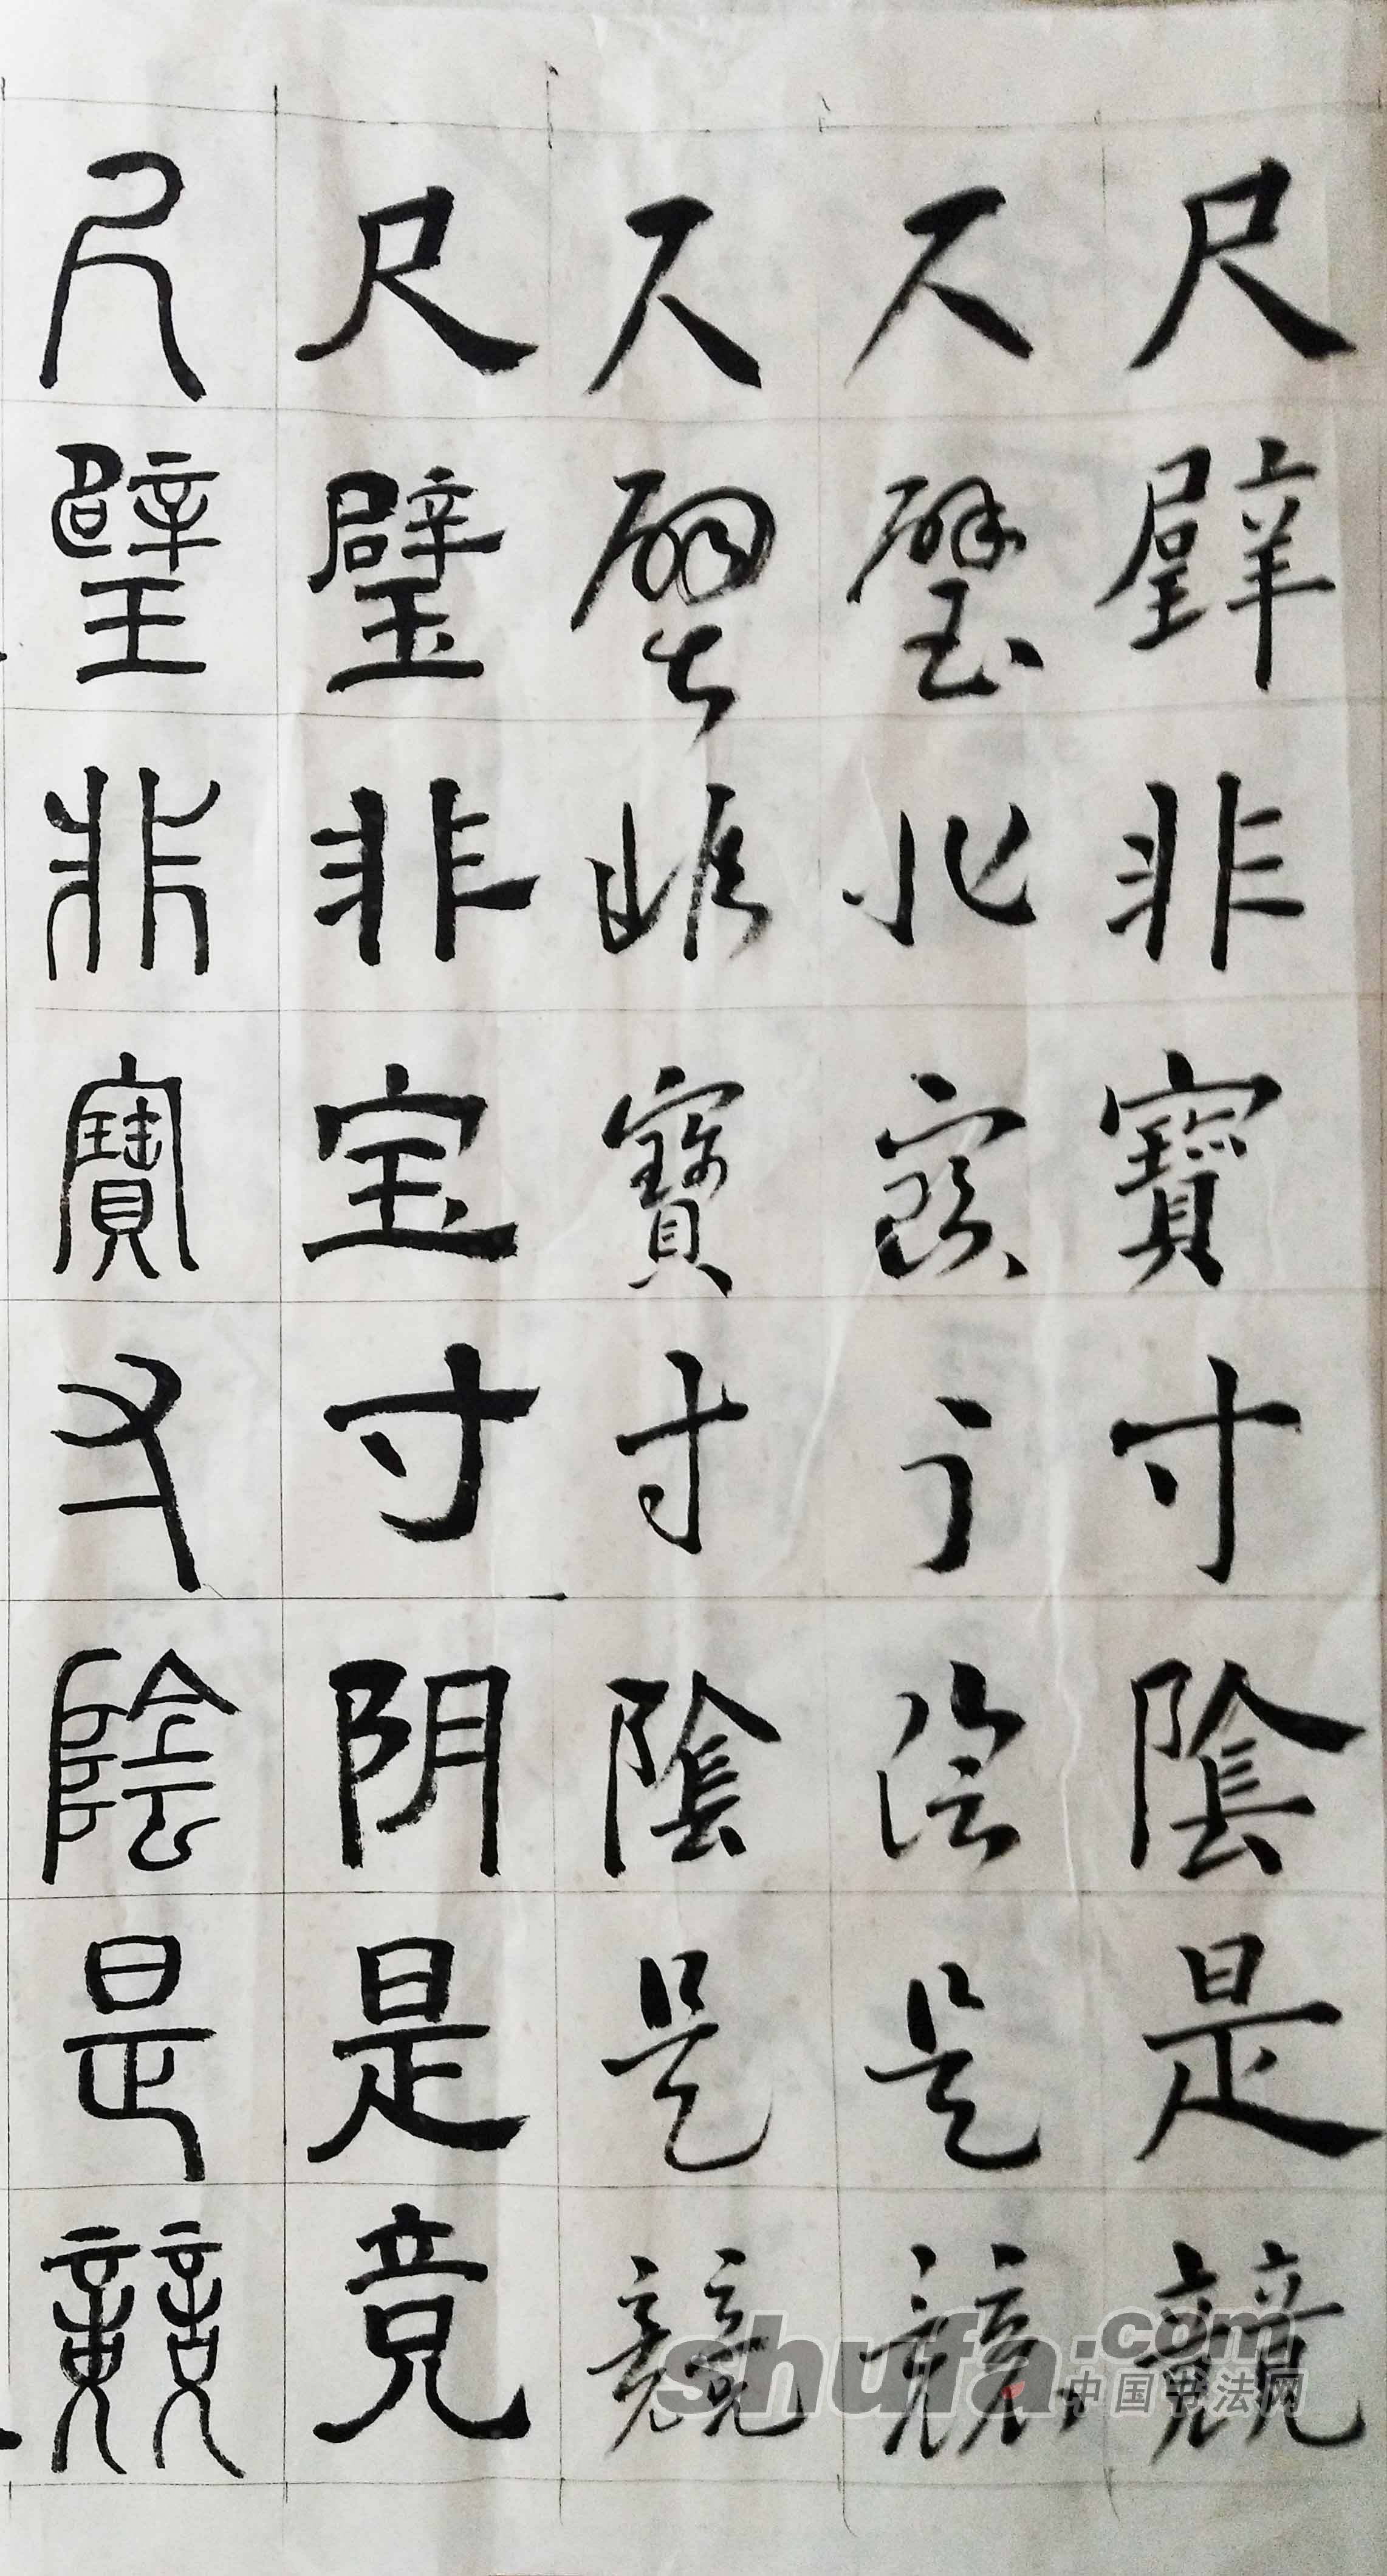 尺璧非寳寸陰是競
尺璧非寶寸陰是競
尺璧非寶寸陰是競
尺璧非宝寸阴是竞
尺璧非寶寸陰是競
shufa.com
中国书法网